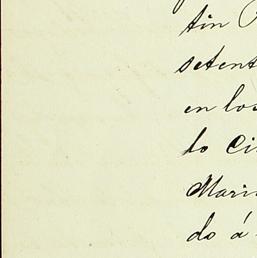 tin
setent
en los
to Ci
Mari
do á